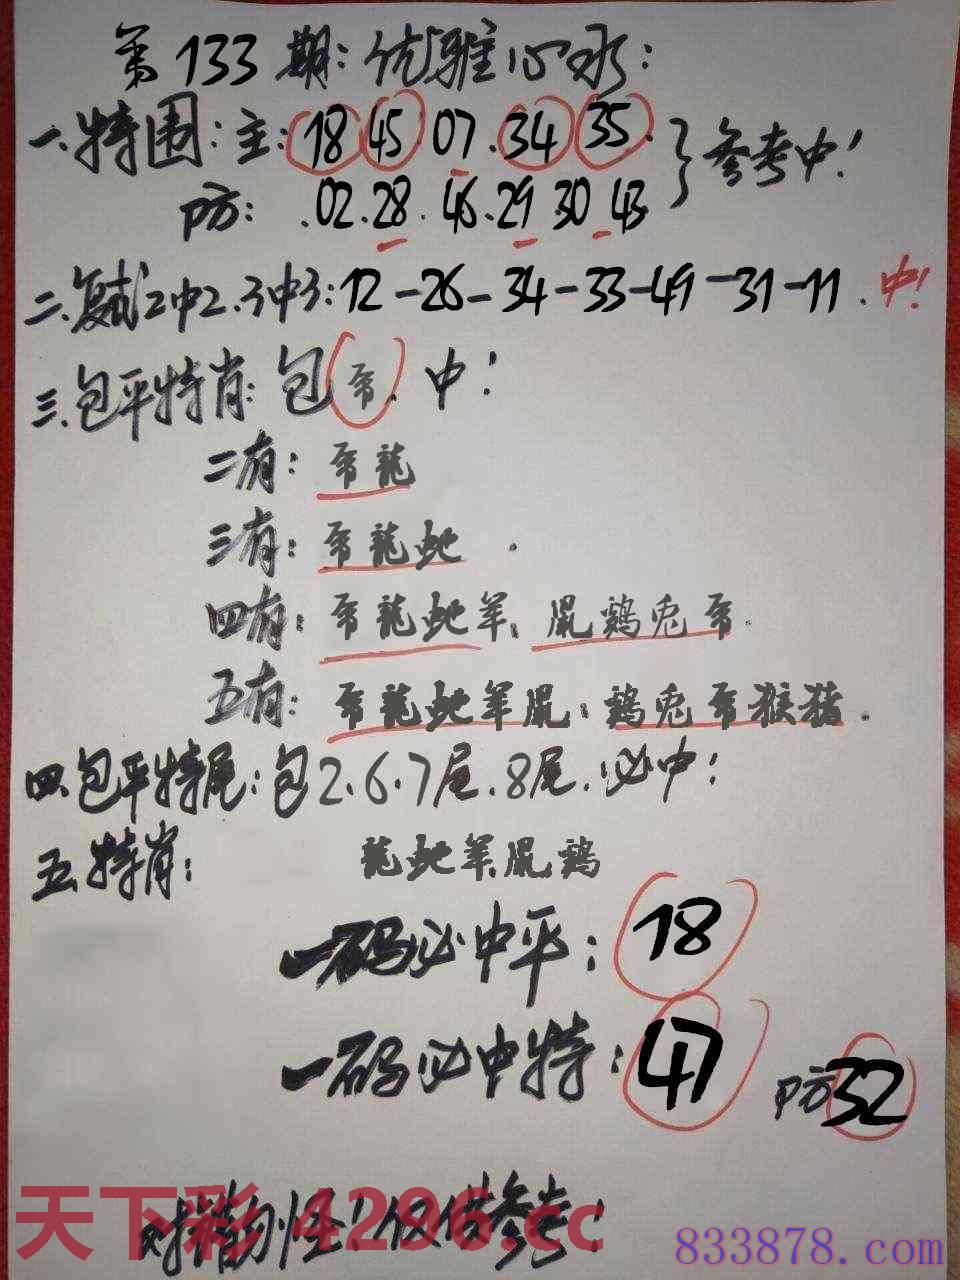 第133期:优雅心水:
一.特围:主:18.45.07.34.35.}参考中!
防:.02.28.46.29.30.43
二.复式2中2.3中3:12-26-34-33-49-31-11.中!
三.包平特肖:包帝.中!
二有:帝龍
三有:帝龍蛇.
四有:帝龍蛇羊.鼠鷄兔帝.
五有:帝龍蛇羊鼠:鷄兔帝猴猪.
四.包平特尾:包2.6.7尾.8尾.必中!
五.特肖:龍蛇羊鼠鷄
一码必中平:18
一码必中特:47 防32
对错勿怪!仅供参考!
天下彩 4296.cc
833878.com